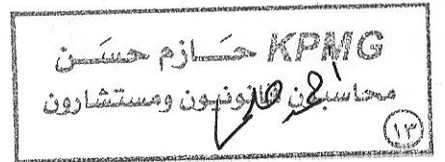 KPMG حـــازم حســـن
محاسبون قانونيون ومستشارون
١٣